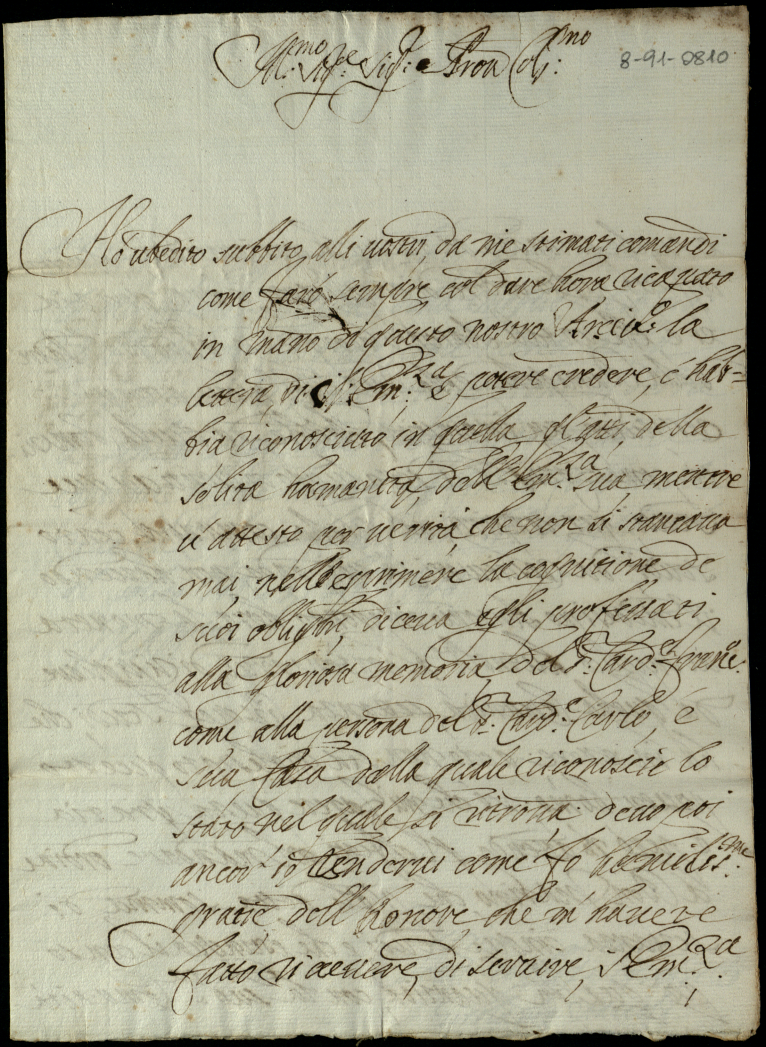 Ill.mo Sig.re Sig.r e Pron Col.mo
8-91-0810
Hò ubedito subbito alli vostri, da me stimati comandi
come farò sempre col dare hora ricapato
in mano di questo nostro Arciv.o la
lettera, di S. Em.za e potete credere, é hab=
bia riconosciuto in quella gl'atti, della
solita humanità, dell'Em.za sua mentre
v'attesto per verità che non si stancava
mai, nell'esprimere la cognitione de
suoi oblighi, diceva egli professati
alla gloriosa memoria, del S.r Card.e Franc.o
come alla persona del S.r Card.e Carlo, é
sua Casa dalla quale riconoscie lo
stato nel quale si ritrova. devo poi
ancor io rendervi come fo humiliss.me
gratie dell'honore, che m'havete
fatto ricevere, di servire, S. Em.za